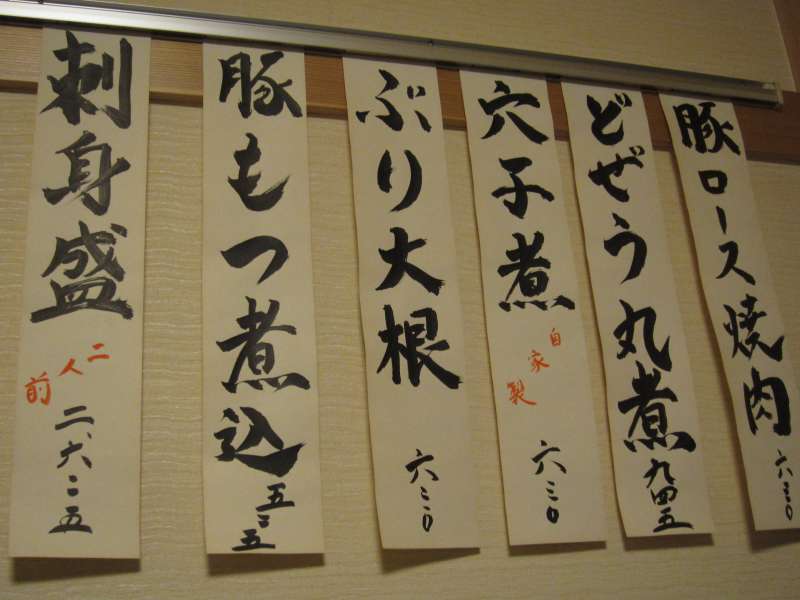 豚ロース焼肉
六三〇
どぜう丸煮
九四五
穴子煮
自家製
六三〇
ぶり大根
六三〇
豚もつ煮込
五二五
刺身盛
二人前
二、六二五